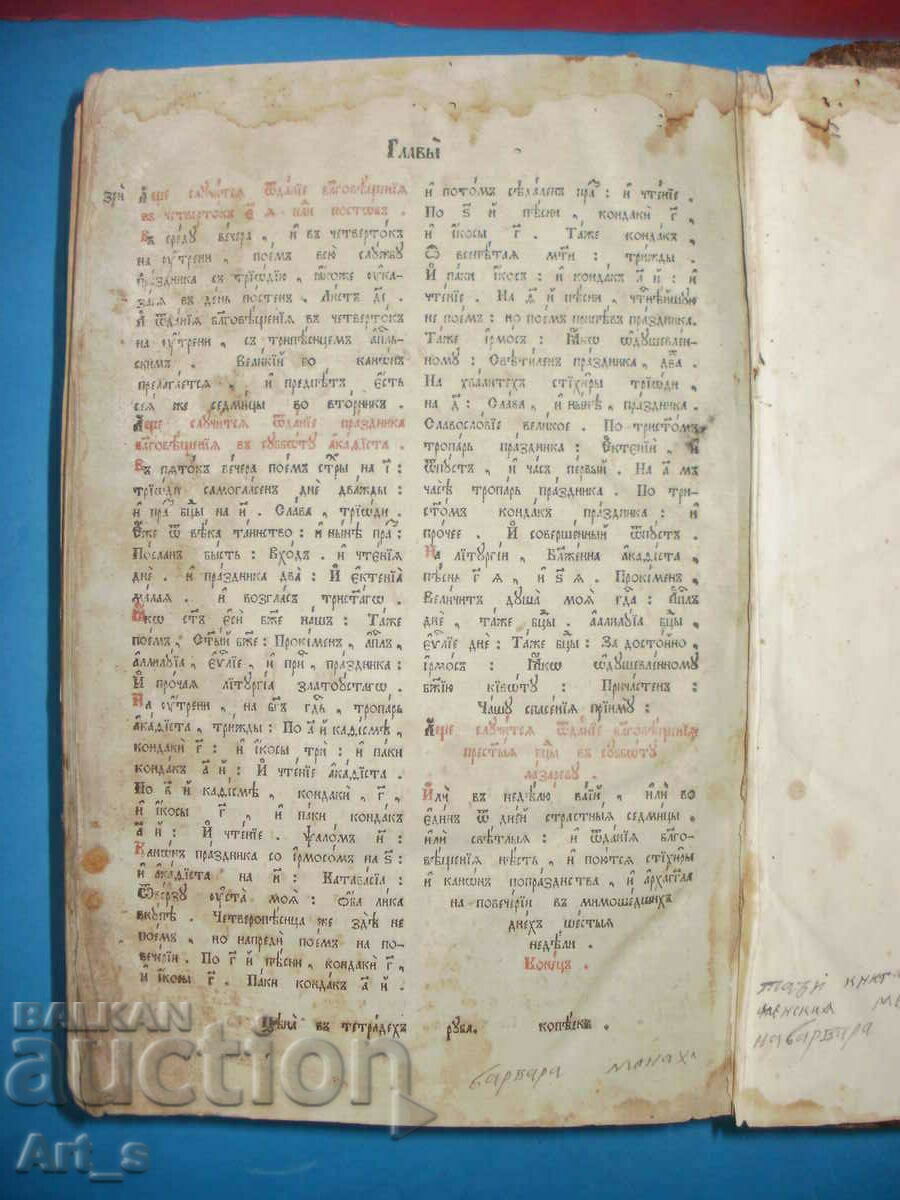 Главы̀
зрѝ
А҆́ще случи́тсѧ ѿда́нїе бл҃говѣ́щенїѧ
въ четверто́къ є҃ ѧ недѣ́ли посто́въ .
Въ сре́ду ве́чера , и҆ въ четверто́къ
на ᲂу҆́трени , пое́мъ всю̀ слу́жбу
пра́здника съ трїѡ́дїю , ꙗ҆́коже ᲂу҆каза-
сѧ въ де́нь по́стенъ , ли́стъ
А҆ ѿда́нїѧ бл҃говѣ́щенїѧ въ четверто́къ
на ᲂу҆́трени , съ трипѣ́снцемъ а҆пⷭ҇ль-
скимъ . Вели́кїй бо канѡ́нъ
прелага́етсѧ , и҆ предпѣ́тъ є҆́сть
сеѧ̀ же седми́цы во вто́рникъ .
А҆́ще случи́тсѧ ѿда́нїе пра́здника
бл҃говѣ́щенїѧ въ суббѡ́ту а҆ка́ѳїста .
Въ пѧто́къ ве́чера пое́мъ стⷯры на і҃ :
трїѡ́ди самогла́сенъ днѐ два́жды :
и҆ пра́ꙁ бцⷣы на и҃ . Сла́ва , трїѡ́ди .
Є҆́же ѿ вѣ́ка та́инство : и҆ ны́нѣ пра́ꙁ :
По́сланъ бы́сть : Вхо́дъ . и҆ чте́нїѧ
днѐ . и҆ пра́здника два̀ : И҆ є҆ктенїа̀
ма́лаѧ . и҆ во́згласъ трист҃а́гѡ .
Ꙗ҆́кѡ ст҃ъ є҆сѝ бж҃е на́шъ : Та́же
пое́мъ , Ст҃ы́й бж҃е : Проки́менъ , а҆пⷭ҇лъ ,
а҆ллилꙋ́їа , є҆ѵⷢ҇лїе , и҆ при , пра́здника :
И҆ про́чаѧ лїтургі́а златоу́стагѡ .
На ᲂу҆́трени , на бг҃ъ гдⷭ҇ь , тропа́рь
а҆ка́ѳїста , три́жды : По а҃ й каѳі́смѣ ,
кондакѝ г҃ : и҆ і҆́косы трѝ : и҆ па́ки
конда́къ а҃ й : И҆ чте́нїе а҆ка́ѳїста .
По в҃ й каѳі́смѣ , кондакѝ г҃ ,
и҆ і҆́косы г҃ , и҆ па́ки конда́къ
а҃ й : И҆ чте́нїе . Ѱало́мъ н҃ :
Канѡ́нъ пра́здника со і҆рмосо́мъ на ѕ҃ :
и҆ а҆ка́ѳїста на и҃ : Катава́сїа :
Ѿве́рзу ᲂу҆ста̀ моѧ̀ : Ѻ҆́ба ли́ка
вку́пѣ . Четверопѣ́снца же здѣ̀ не
пое́мъ , но напредѝ пое́мъ на по-
вече́рїи . По г҃ й пѣ́сни , кондакѝ г҃ ,
и҆ і҆́косы г҃ . Па́ки конда́къ а҃ й .
и҆ пото́мъ сѣда́ленъ пра́ꙁ : и҆ чте́нїе
По ѕ҃ й пѣ́сни , кондакѝ г҃ ,
и҆ і҆́косы г҃ . Та́же конда́къ ,
Ѽ всепѣ́таѧ мт҃и : три́жды .
И҆ па́ки і҆́косъ : и҆ конда́къ а҃ й : и҆
чте́нїе . На ѳ҃ й пѣ́сни , чтⷭ҇нѣ́йшую
не пое́мъ : но пое́мъ припѣ́въ пра́здника .
Та́же і҆рмо́съ : Ꙗ҆́кѡ ѡ҆душевле́н-
ному : Свѣти́ленъ пра́здника , два̀
На хвали́техъ стїхи́ры трїѡ́ди ,
на д҃ : Сла́ва , и҆ ны́нѣ , пра́здника .
Славосло́вїе вели́кое . По трист҃о́мъ
тропа́рь пра́здника : Є҆ктенїѝ , и҆
ѿпу́стъ , и҆ ча́съ пе́рвый . На а҃ мъ
часѣ̀ тропа́рь пра́здника . По три-
ст҃о́мъ конда́къ пра́здника : и҆
про́чее . И҆ соверше́нный ѿпу́стъ
На лїтургі́и , блаже́нна а҆ка́ѳїста ,
пѣ́снь г҃ ѧ , и҆ ѕ҃ ѧ . Проки́менъ ,
Вели́читъ душа̀ моѧ̀ гдⷭ҇а : А҆пⷭ҇лъ
днѐ , та́же бцⷣы . а҆ллилꙋ́їа бцⷣы ,
є҆ѵⷢ҇лїе днѐ : Та́же бцⷣы : За досто́йно ,
і҆рмо́съ : Ꙗ҆́кѡ ѡ҆душевле́нному
бж҃їю кївѡ́ту : Прича́стенъ :
Ча́шу спасе́нїѧ прїиму̀ :
А҆́ще случи́тсѧ ѿда́нїе бл҃говѣ́щенїѧ
прест҃ы́ѧ бцⷣы въ суббѡ́ту
ла́зареву .
И҆лѝ въ недѣ́лю ва́їй , и҆лѝ во
є҆ди́нъ ѿ дні́й стра́стныѧ седми́цы .
и҆лѝ свѣ́тлыѧ : и҆ ѿда́нїѧ бл҃го-
вѣ́щенїѧ нѣ́сть , и҆ пою́тсѧ стїхи́ры
и҆ канѡ́нъ попра́зднства , и҆ а҆рха́гг҃ла
на повече́рїи въ мимоше́дшихъ
дне́хъ шесты́ѧ
недѣ́ли .
Коне́цъ .
Цѣна̀ въ тетра́дехъ рубл. копѣ́екъ
варвара монах
тази книга
на варвара
BALKAN
auction
Art_s